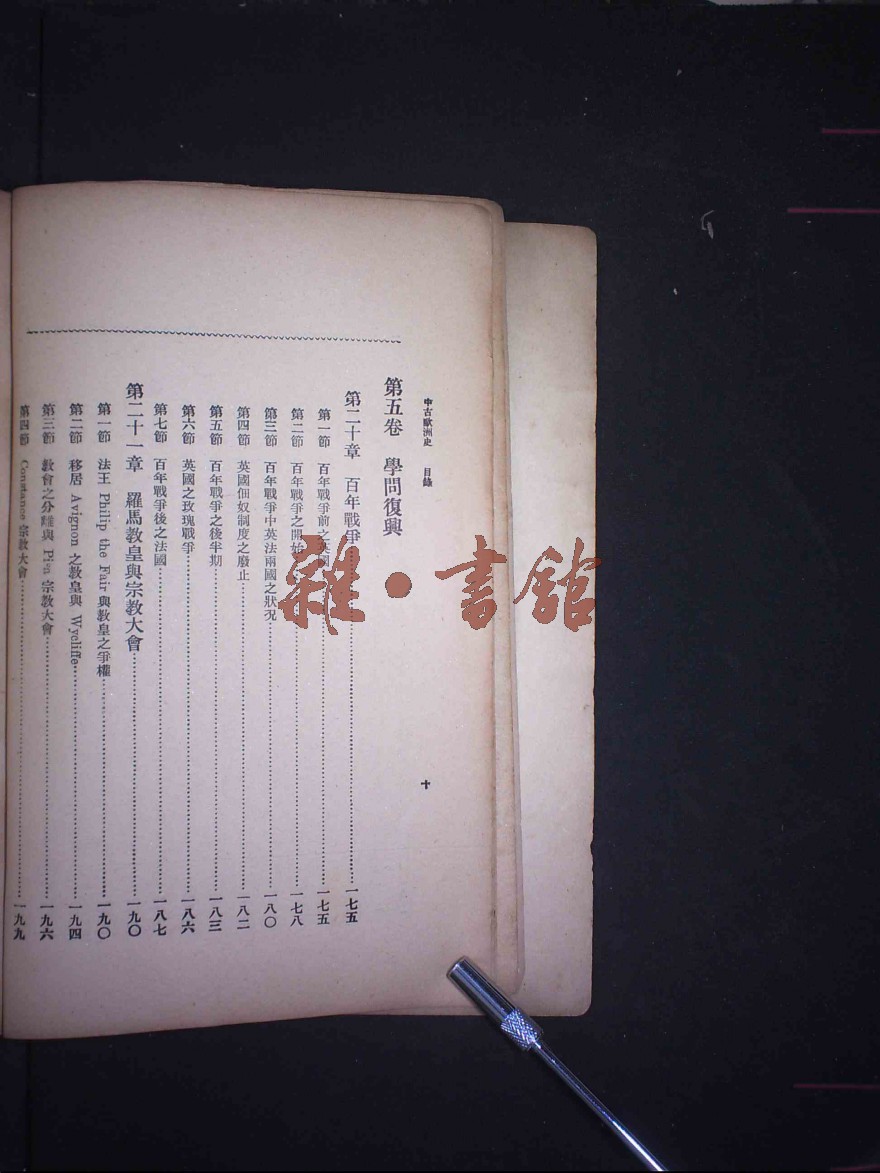 中古歐洲史 目錄 十
第五卷 學問復興
第二十章 百年戰爭 一七五
第一節 百年戰爭前之英國 一七五
第二節 百年戰爭之開始 一七八
第三節 百年戰爭中英法兩國之狀況 一八〇
第四節 英國佃奴制度之廢止 一八二
第五節 百年戰爭之後半期 一八三
第六節 英國之玫瑰戰爭 一八六
第七節 百年戰爭後之法國 一八七
第二十一章 羅馬教皇與宗教大會 一九〇
第一節 法王 Philip the Fair 與教皇之爭權 一九〇
第二節 移居 Avignon 之教皇與 Wycliffe 一九四
第三節 教會之分離與 Pisa 宗教大會 一九六
第四節 Constance 宗教大會 一九九
雜·書館